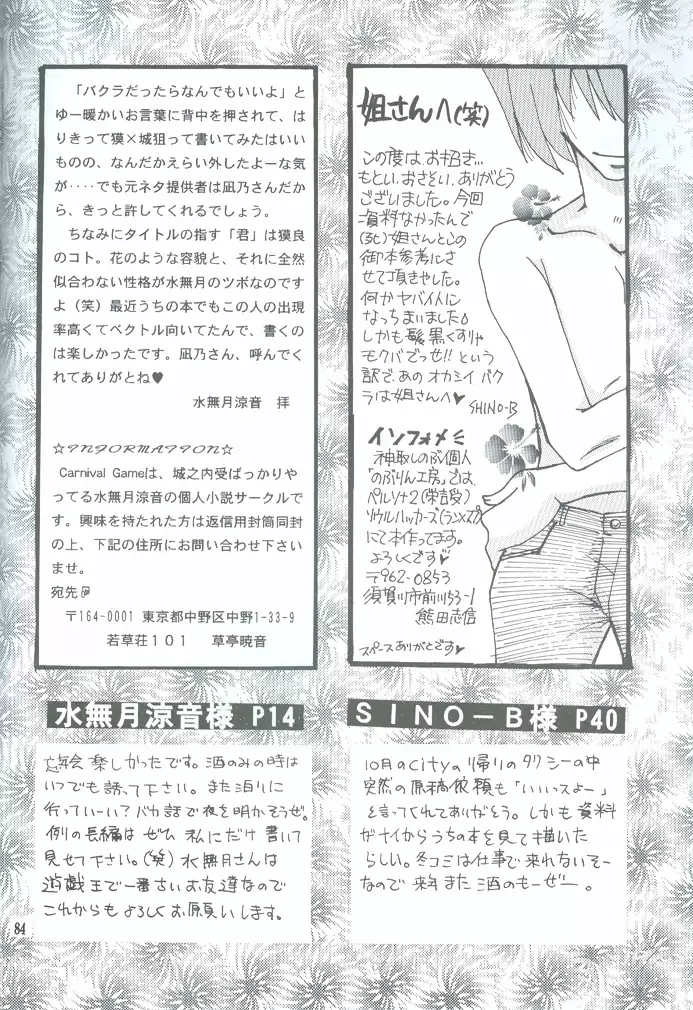 「バクラだったらなんでもいいよ」と
ゆー暖かいお言葉に背中を押されて、は
りきって獏×城狙って書いてみたはいい
ものの、なんだかえらい外したよーな気
が‥‥でも元ネタ提供者は凪乃さんだか
ら、きっと許してくれるでしょう。
ちなみにタイトルの指す「君」は獏良
のコト。花のような容貌と、それに全然
似合わない性格が水無月のツボなのです
よ（笑）最近うちの本でもこの人の出現
率高くてベクトル向いてたんで、書くの
は楽しかったです。凪乃さん、呼んでく
れてありがとね♥
水無月涼音　拝
☆INFORMATION☆
Carnival Gameは、城之内受ばっかりや
ってる水無月涼音の個人小説サークルで
す。興味を持たれた方は返信用封筒同封
の上、下記の住所にお問い合わせ下さい
ませ。
宛先
〒164-0001 東京都中野区中野1-33-9
若草荘１０１　草亭暁音
姐さんへ(笑)
この度は、お招き…
もとい、おさそい、ありがとう
ございました。今回
資料なかったんで
姐さんとこの
御本参考にさ
せて頂きやした。
何かヤバイ人に
なっちまいました
しかも髪黒くすりゃ
モクバでっせ!!という
訳で、あのオカシイバク
ラは姐さんへ♥
SHINO-B
インフォメ
神取しのぶ個人
「のぶりん工房」では、
ペルソナ2(常吉受)
ソウルハッカーズ(ランXスプ)
にて本作ってます。
よろしくです♥
〒962-0853
須賀川市前川53-1
熊田志信
スペースありがとです♥
水無月涼音様 P14
SINO－B様 P40
忘年会楽しかったです。酒のみの時は
いつでも誘って下さい。また泊りに
行っていーい？バカ話で夜を明かそうぜ。
例の長編はぜひ私にだけ書いて
見せて下さい。(笑)水無月さんは
遊戯王で一番古いお友達なので
これからもよろしくお願いします。
10月のcityの帰りのタクシーの中
突然の原稿依頼も「いいっスよー」
と言ってくれてありがとう。しかも資料
がナイからうちの本を見て描いた
らしい。冬コミは仕事で来れないそー
なので来年また酒のもーぜー。
84